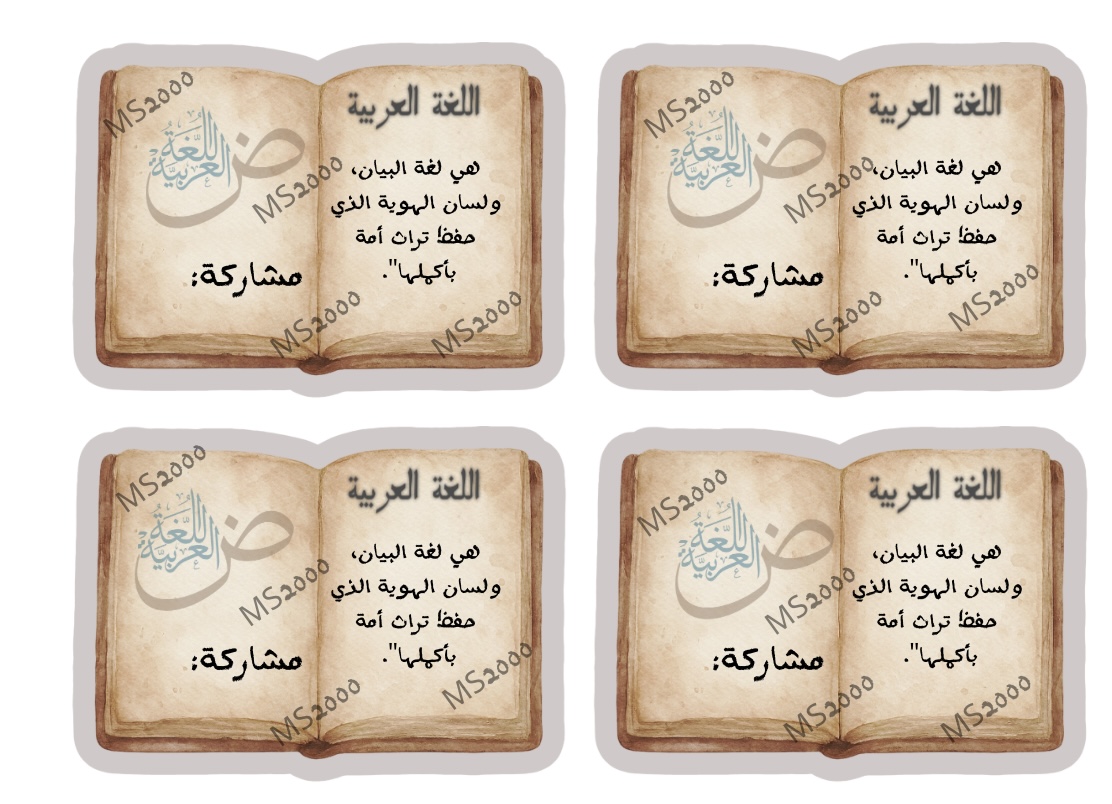 اللغة العربية
هي لغة البيان،
ولسان الهوية الذي
حفظ تراث أمة
بأكملها".
ض
اللغة العربية
مشاركة:
MS2000
MS2000
MS2000
MS2000
اللغة العربية
هي لغة البيان،
ولسان الهوية الذي
حفظ تراث أمة
بأكملها".
ض
اللغة العربية
مشاركة:
MS2000
MS2000
MS2000
MS2000
اللغة العربية
هي لغة البيان،
ولسان الهوية الذي
حفظ تراث أمة
بأكملها".
ض
اللغة العربية
مشاركة:
MS2000
MS2000
MS2000
MS2000
اللغة العربية
هي لغة البيان،
ولسان الهوية الذي
حفظ تراث أمة
بأكملها".
ض
اللغة العربية
مشاركة:
MS2000
MS2000
MS2000
MS2000